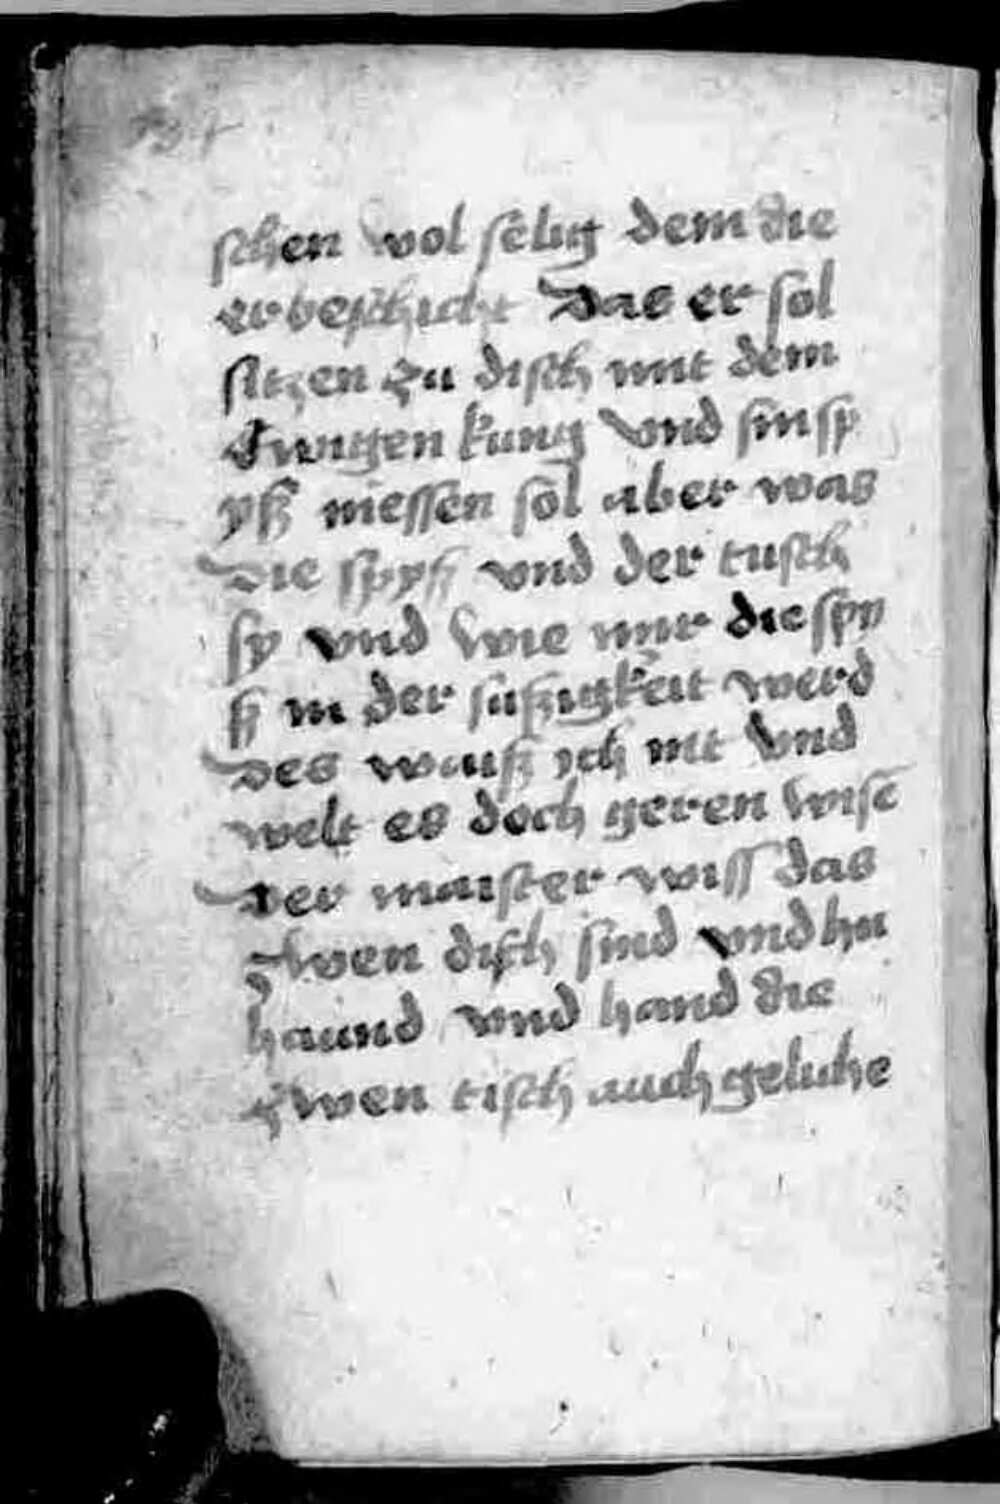 schen wol sëlig dem die
er beschicht Das er sol
sitzen zu disch mit dem
Ewigen kung vnd sin sp
yß niessen sol aber was
Die spyß vnd der tusch
sy vnd wie mir die spy
ß in der süßigkeit werd
Des waiß ich nit vnd
welt es doch geren wise
Der maister wiss das
zwen disch sind vnd hn
haund vnd hand die
zwen tisch auch geliche